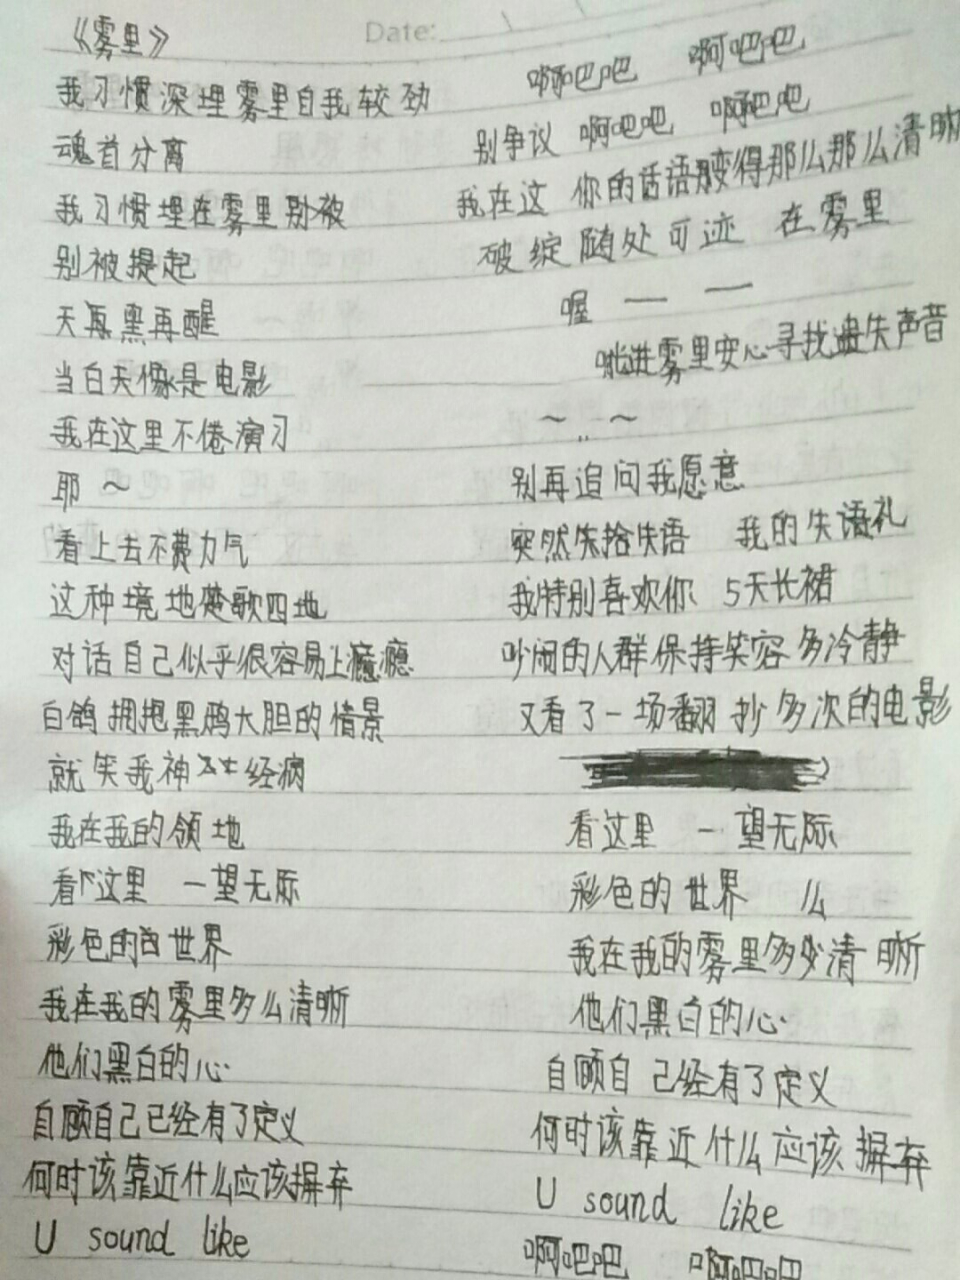 《雾里》
Date:
我习惯深埋雾里自我较劲
魂首分离
我习惯埋在雾里别被
别被提起
天再黑再醒
当白天像是电影
我在这里不倦演习
耶~
看上去不费力气
这种境地楚歌四地
对话自己似乎很容易上瘾
白鸽拥抱黑鸦大胆的情景
就笑我神经病
我在我的领地
看这里 一望无际
彩色的世界
我在我的雾里多么清晰
他们黑白的心
自顾自己已经有了定义
何时该靠近什么应该摒弃
U sound like
啊吧吧 啊吧吧
别争议 啊吧吧 啊吧吧
我在这 你的话语变得那么那么清晰
破绽随处可迹 在雾里
喔 — —
逃进雾里安心寻找遗失声音
~ ~
别再追问我愿意
突然失拾失语 我的失语礼
我特别喜欢你 5天长裙
吵闹的人群保持笑容多冷静
又看了一场翻抄多次的电影
看这里 一望无际
彩色的世界 么
我在我的雾里多少清晰
他们黑白的心
自顾自己经有了定义
何时该靠近什么应该摒弃
U sound like
啊吧吧 啊吧吧